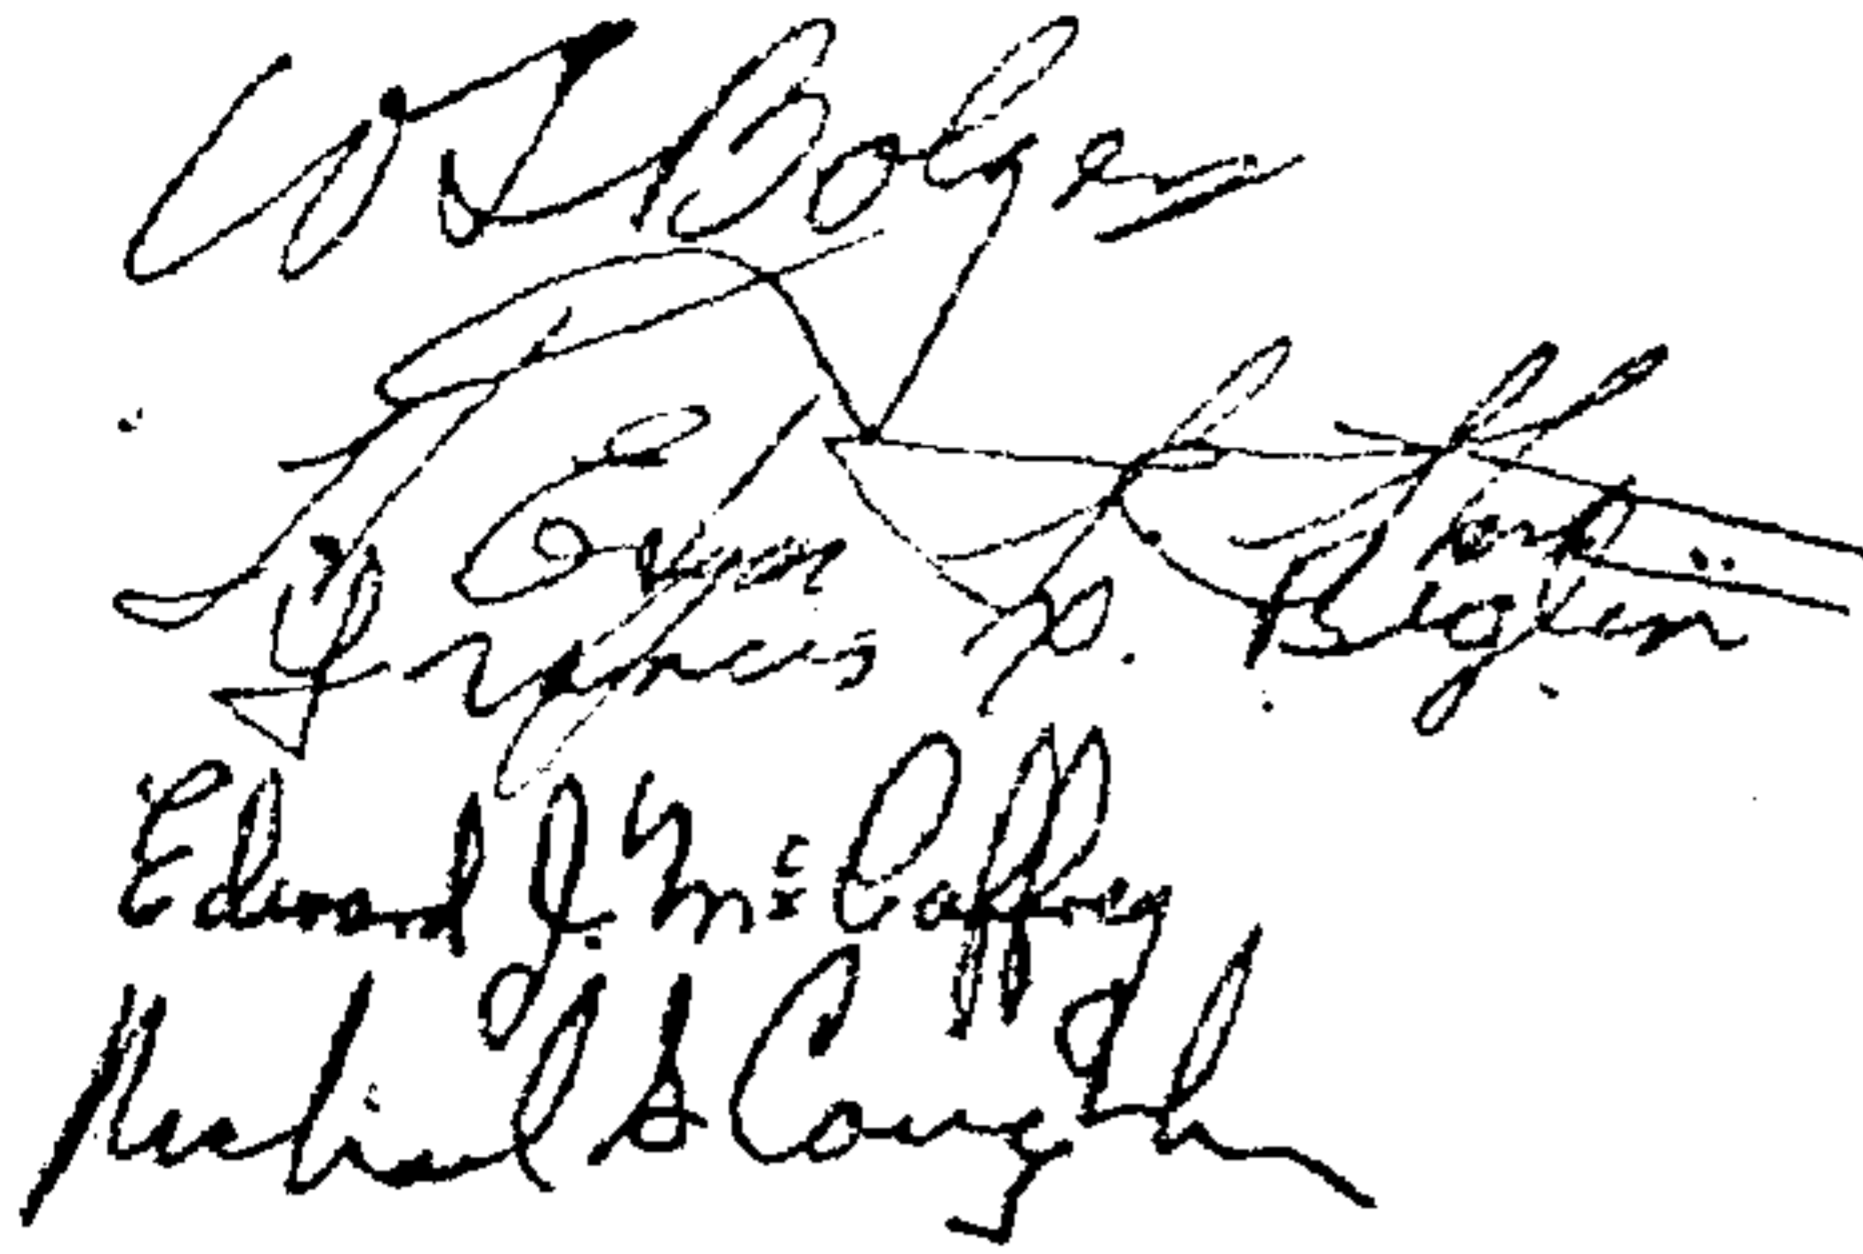 W F Bolger
Francis X. Biglin
Edward J. McCaffrey
Michael S Coughlin